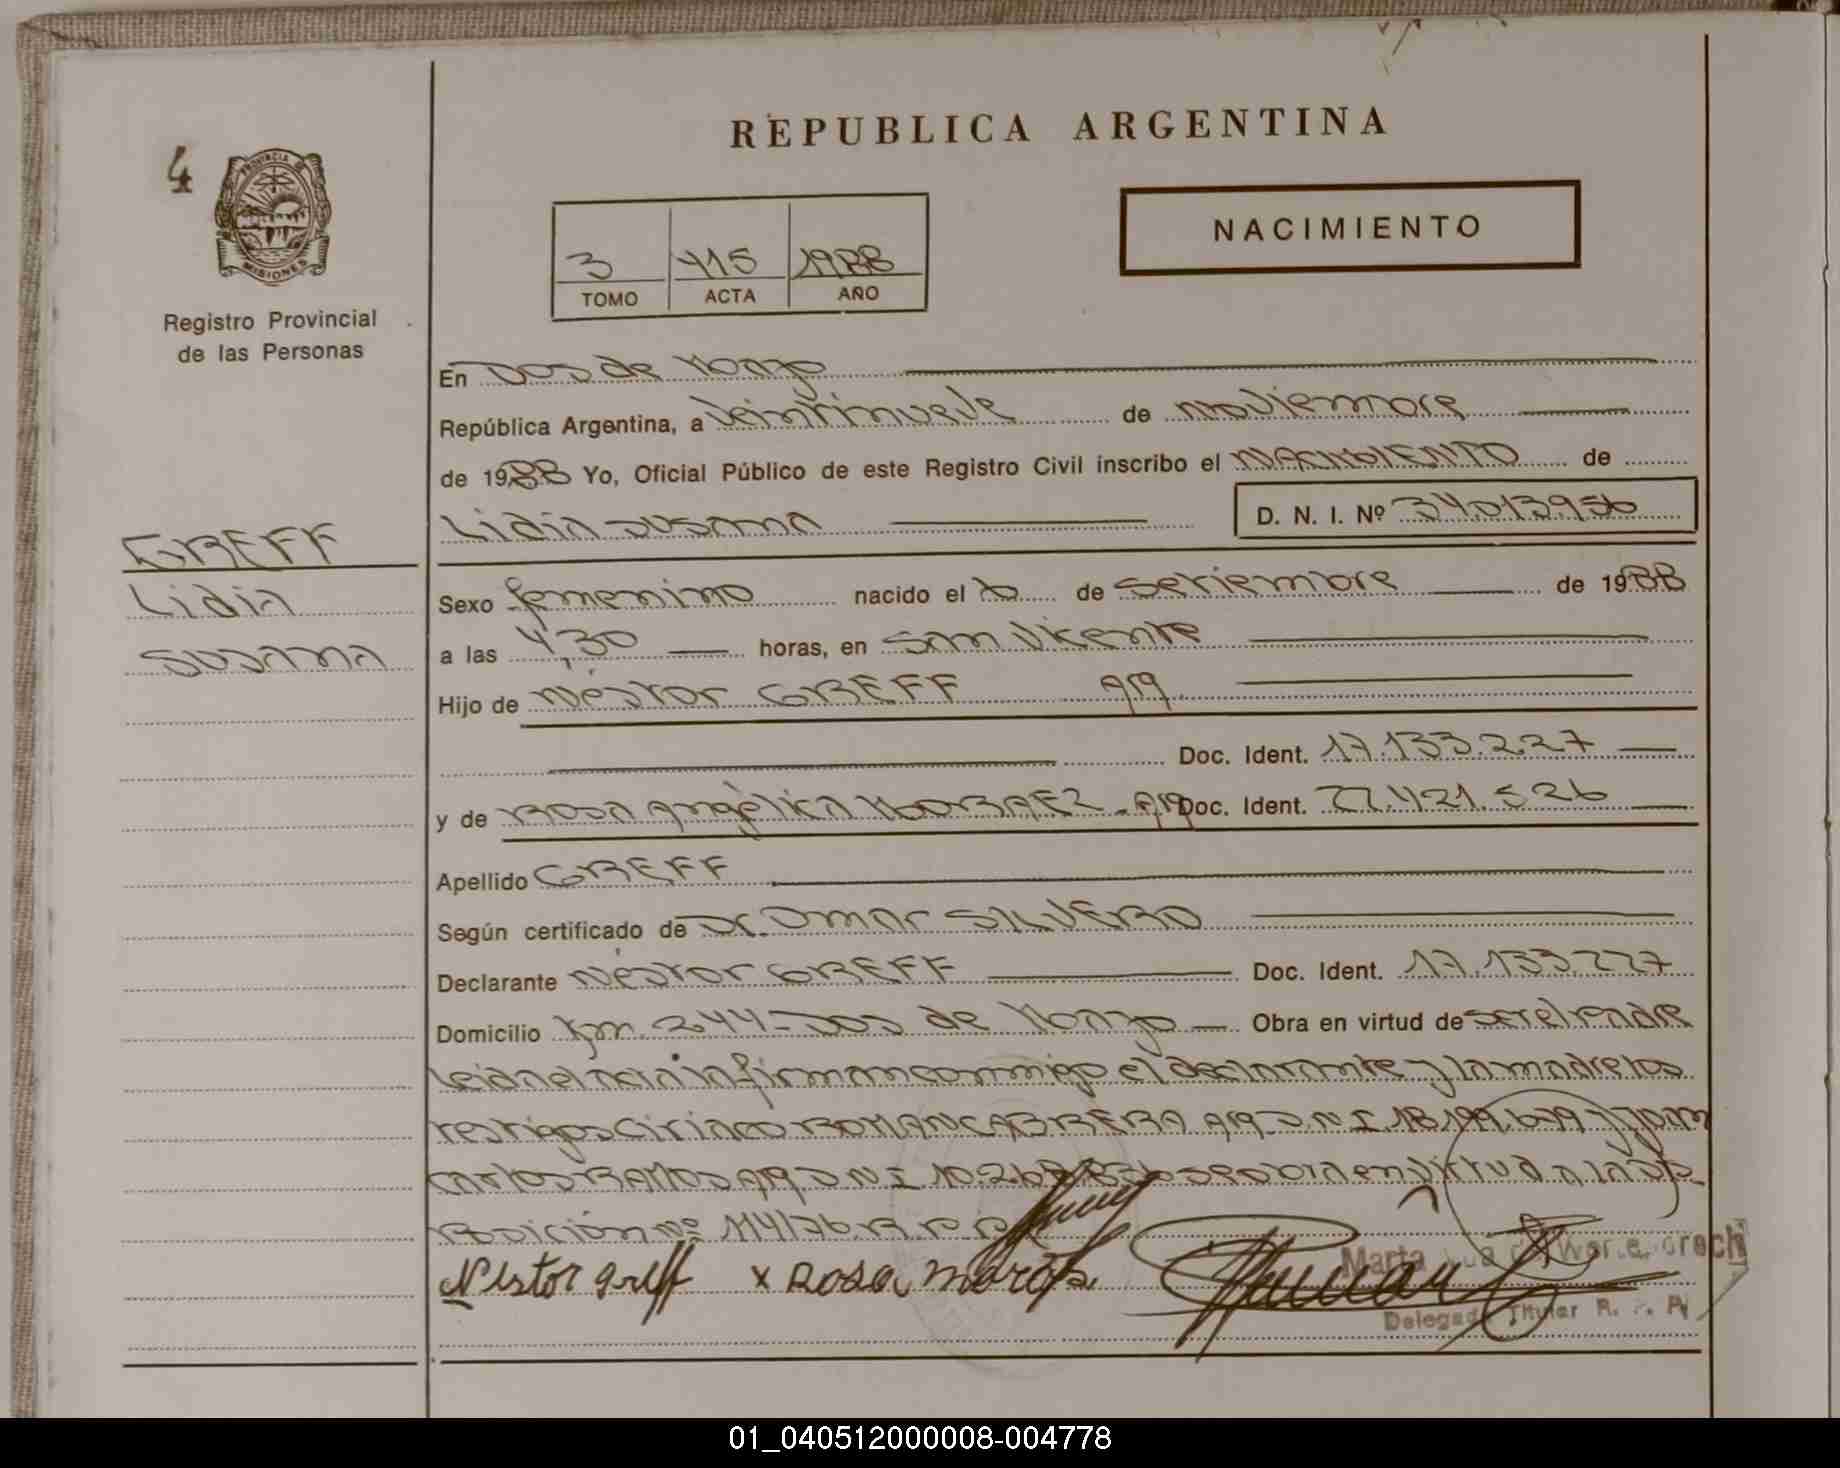 REPUBLICA ARGENTINA
4
PROVINCIA DE
MISIONES
NACIMIENTO
3 415 1988
TOMO ACTA AÑO
Registro Provincial
de las Personas
En Dos de Mayo
República Argentina, a veintinueve de noviembre
de 1988 Yo, Oficial Público de este Registro Civil inscribo el NACIMIENTO de
Lidia Susana D. N. I. Nº 34.013.956
GREFF
Lidia
Susana
Sexo femenino nacido el 6 de setiembre de 1988
a las 4,30 horas, en San Vicente
Hijo de Néstor GREFF arg
Doc. Ident. 17.133.227
y de Rosa Angélica MORAEZ - arg Doc. Ident. 22.421.526
Apellido GREFF
Según certificado de Dr. Omar SILVERO
Declarante Néstor GREFF Doc. Ident. 17.133.227
Domicilio Km. 244 - Dos de Mayo Obra en virtud de ser el padre
Leida el acta la firman conmigo el declarante y la madre los
testigos Ciriaco ROMAN CABRERA arg D.N.I. 18.199.679 y Juan
Carlos RAMOS arg D.N.I 10.26 836 se en virtud a la dis
posición Nº 114/76. R. P. P.
Nestor Greff x Rosa
Marta
Delegada Titular R. P. P.
01_040512000008-004778